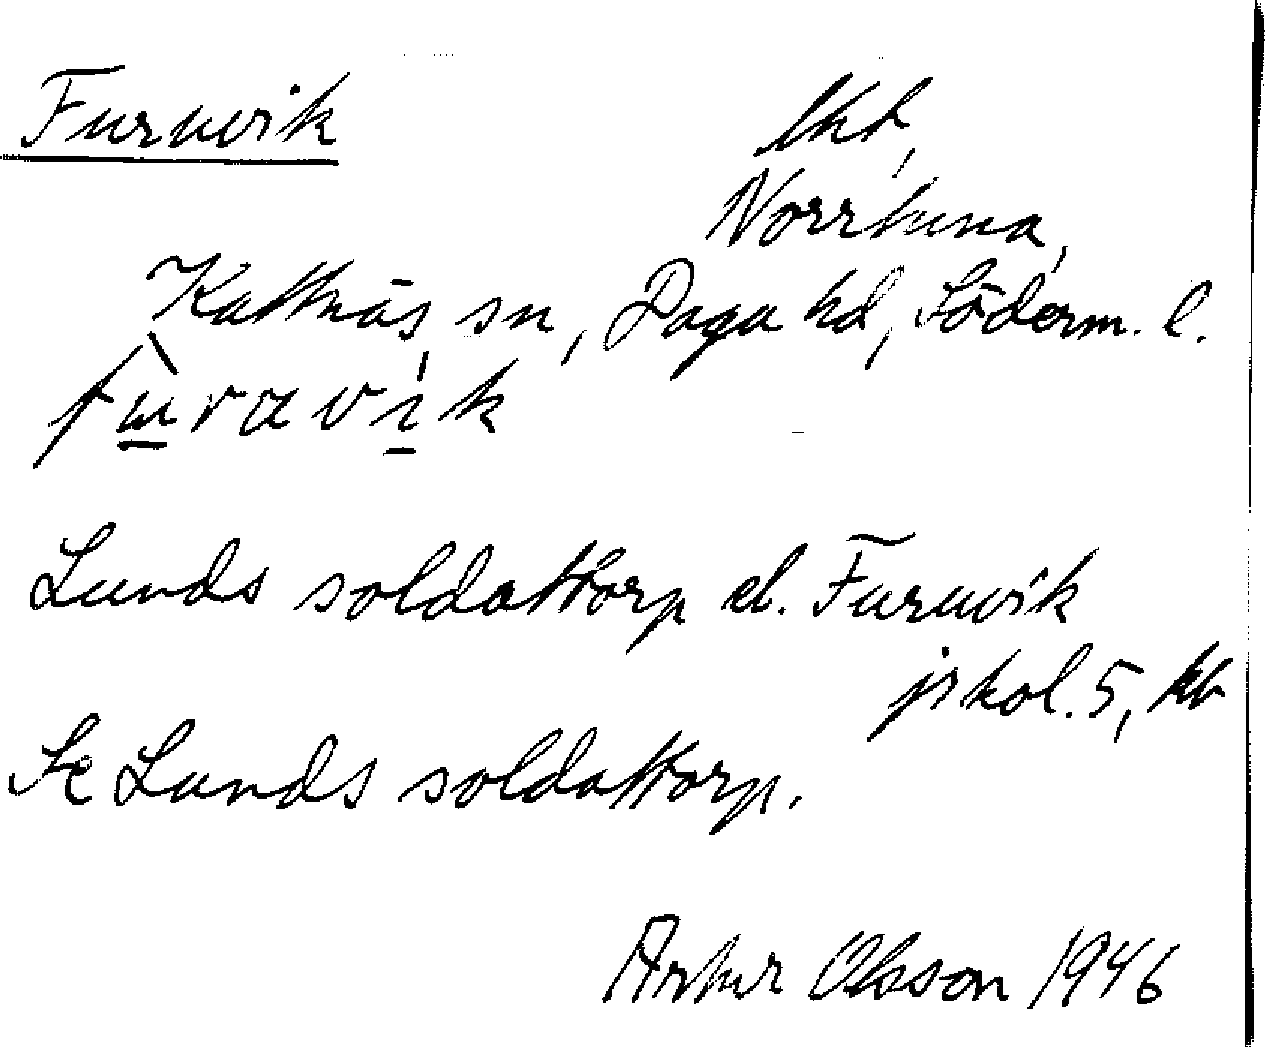 Furuvik lht,
Norrtuna,
Kattnäs sn, Daga hd, Söderm. l.
furavik
Lunds soldattorp el. Furuvik
jrkol. 5, kb
Se Lunds soldattorp.
Artur Olsson 1946